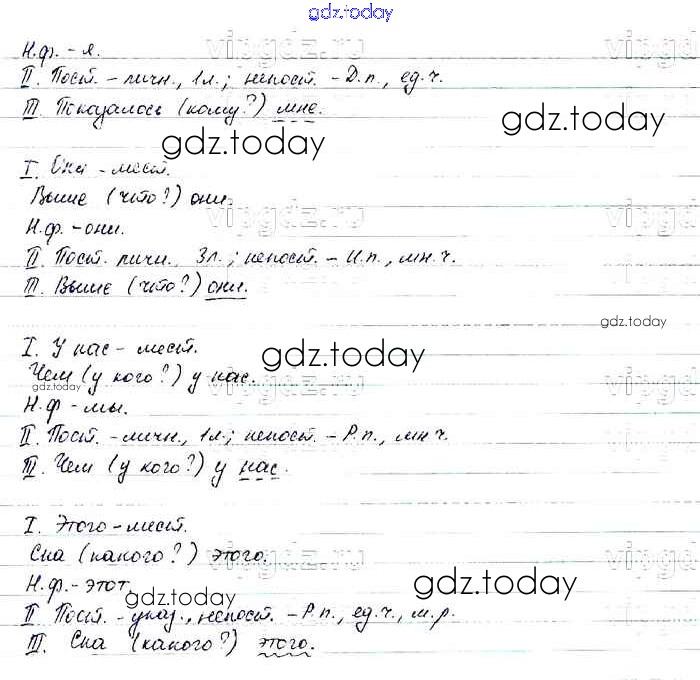 gdz.today
vipgdz.ru
Н.ф. - я.
II. Пост. - личн., 1л.; непост. - Д.п., ед.ч.
III. Показалось (кому?) мне.
gdz.today
gdz.today
I. Они - мест.
Выше (что?) они.
Н.ф. - они.
II. Пост. личн. 3л.; непост. - И.п., мн.ч.
III. Выше (что?) они.
gdz.today
I. У нас - мест.
gdz.today
Чем (у кого?) у нас.
gdz.today
Н.ф - мы.
II. Пост. - личн., 1л.; непост. - Р.п., мн.ч.
III. Чем (у кого?) у нас.
I. Этого - мест.
Сна (какого?) этого.
Н.ф. - этот.
gdz.today
gdz.today
II. Пост. - указ., непост. - Р.п., ед.ч., м.р.
III. Сна (какого?) этого.